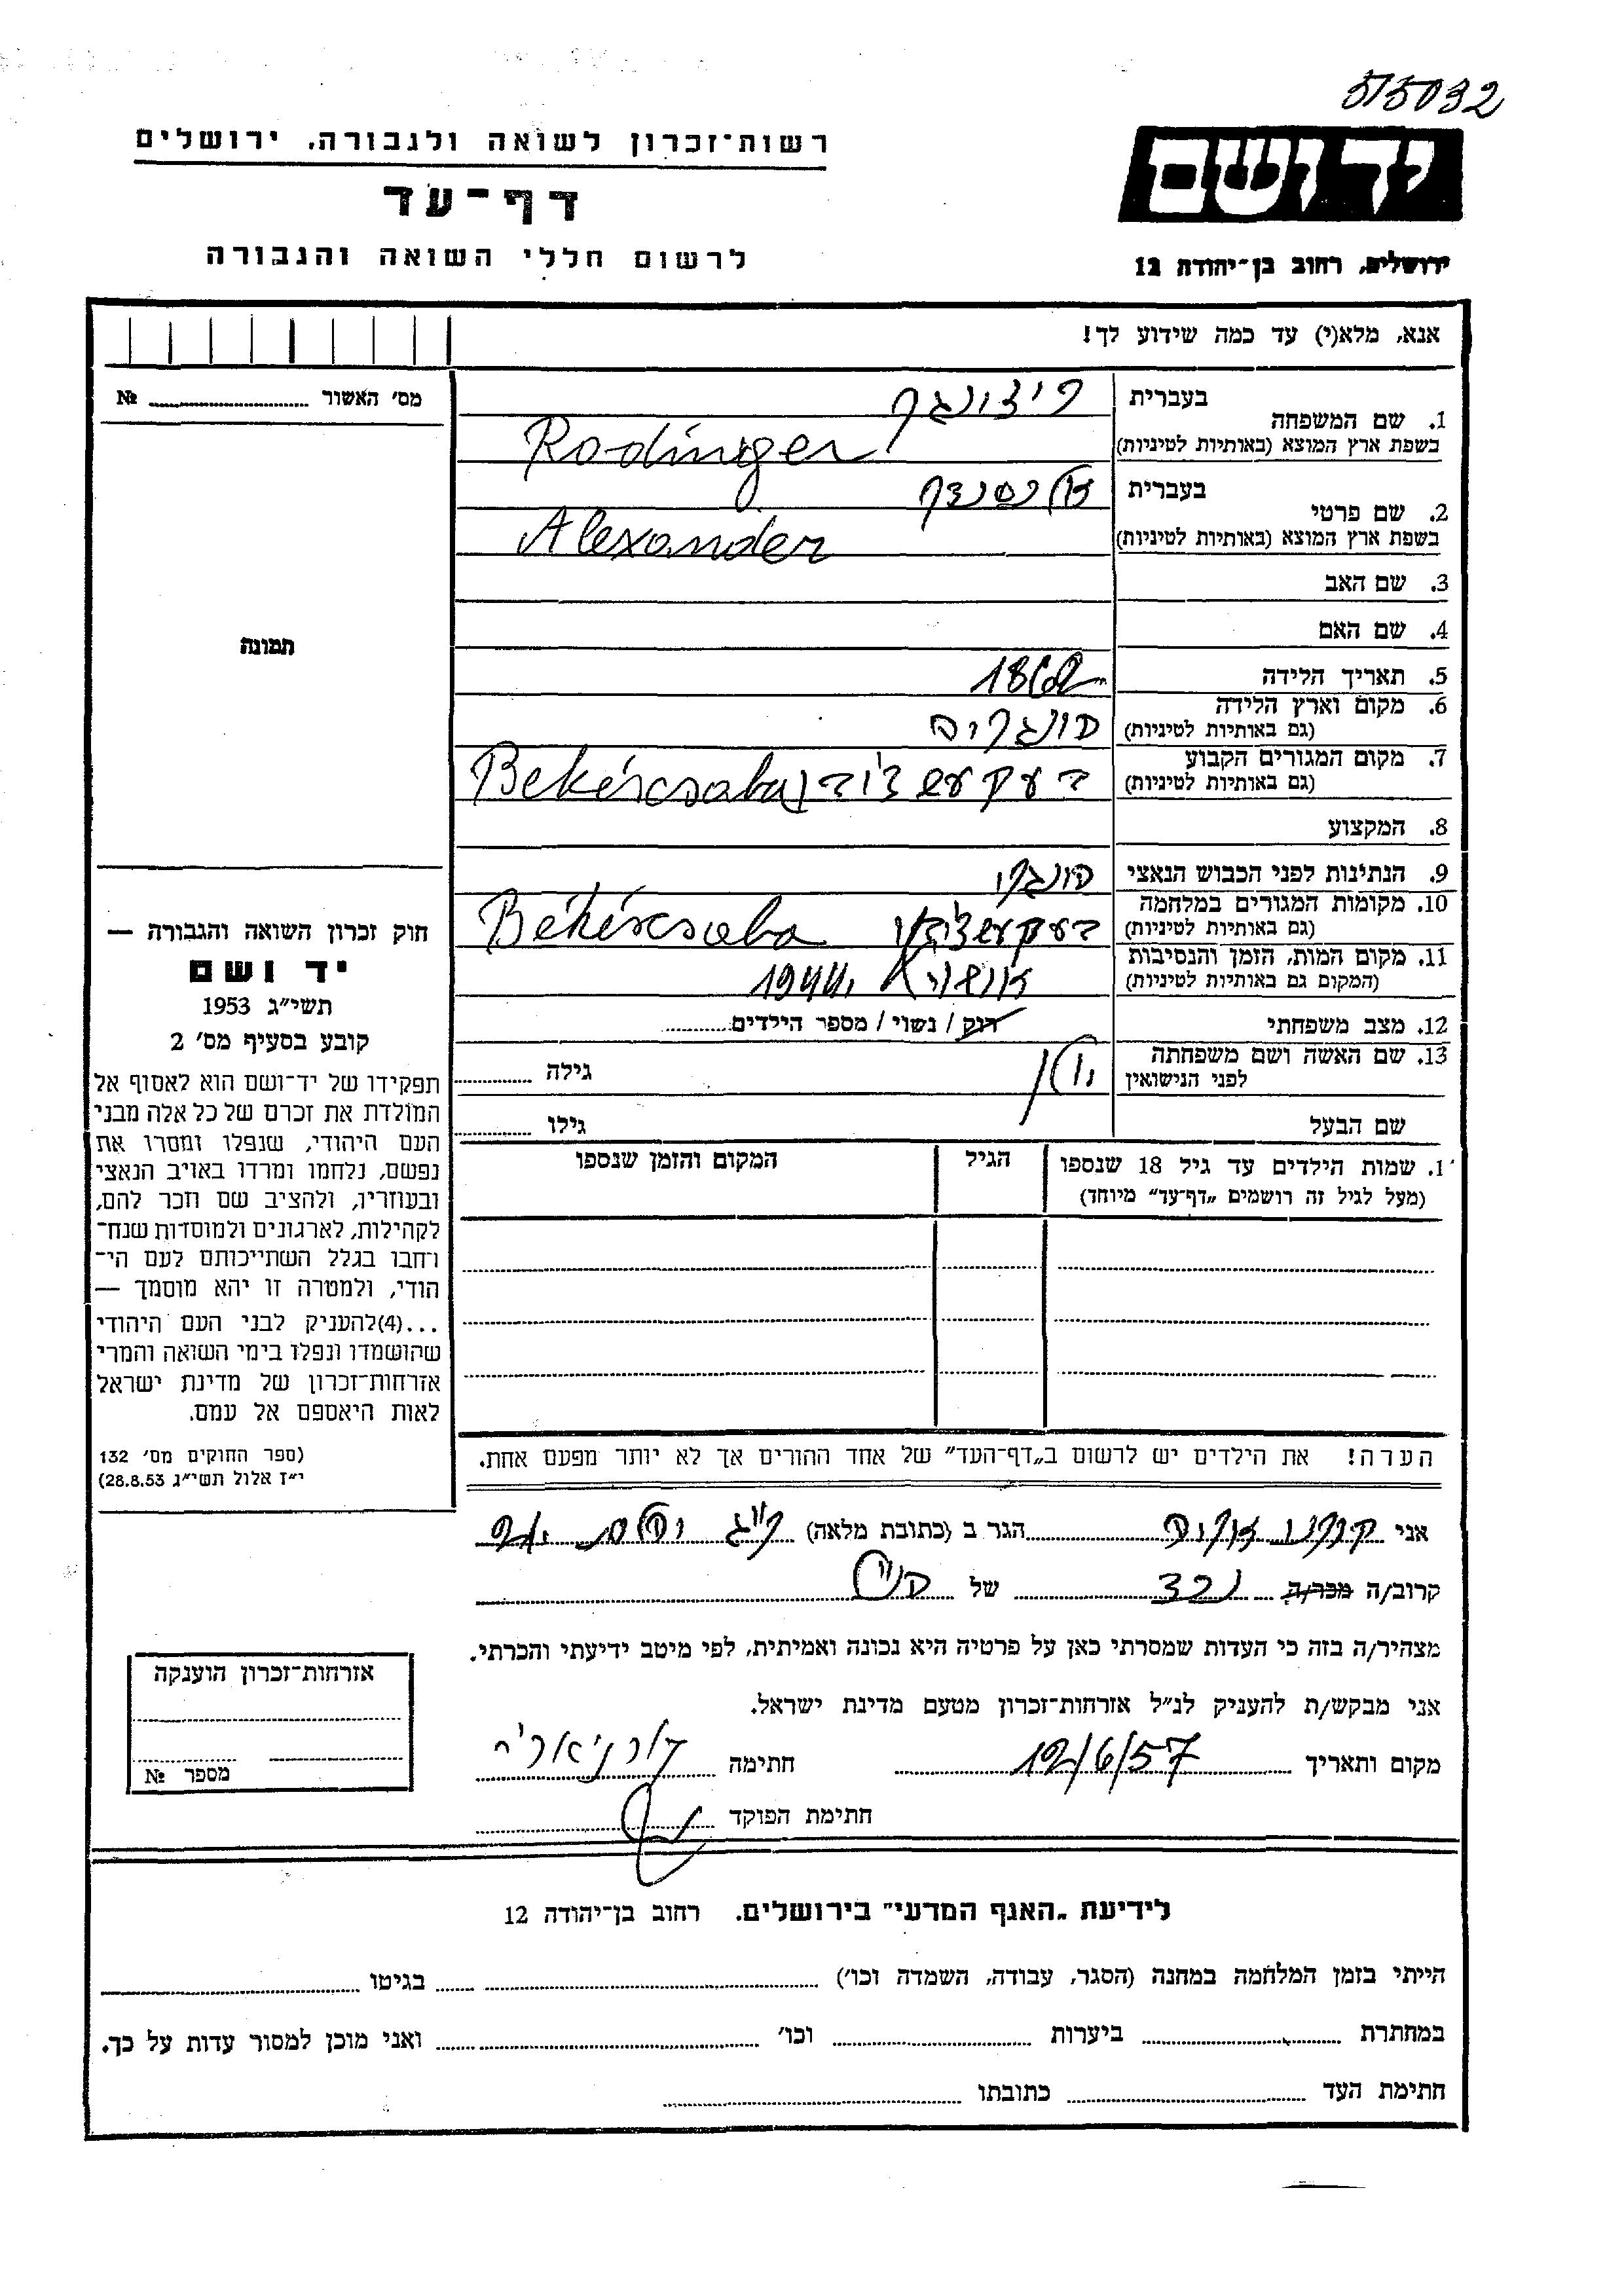 515032
יד ושם
ירושלים, רחוב בן־יהודה 12
רשות־זכרון לשואה ולגבורה, ירושלים
דף־עד
לרשום חללי השואה והגבורה
אנא, מלא(י) עד כמה שידוע לך!
מס׳ האשור № 
1. שם המשפחה
בעברית
בשפת ארץ המוצא (באותיות לטיניות) Rodinger
2. שם פרטי
בעברית אלכסנדר
בשפת ארץ המוצא (באותיות לטיניות) Alexander
3. שם האב
4. שם האם
5. תאריך הלידה
6. מקום וארץ הלידה
(גם באותיות לטיניות) הונגריה
7. מקום המגורים הקבוע
(גם באותיות לטיניות) Bekéscsaba
8. המקצוע
9. הנתינות לפני הכבוש הנאצי הונגרי
10. מקומות המגורים במלחמה
(גם באותיות לטיניות) Békéscsaba
11. מקום המות, הזמן והנסיבות
(המקום גם באותיות לטיניות) 1944
12. מצב משפחתי רוק / נשוי / מספר הילדים
13. שם האשה ושם משפחתה
לפני הנישואין גילה
שם הבעל גילו
1. שמות הילדים עד גיל 18 שנספו
(מעל לגיל זה רושמים „דף־עד״ מיוחד)
הגיל
המקום והזמן שנספו
הערה! את הילדים יש לרשום ב„דף־העד״ של אחד ההורים אך לא יותר מפעם אחת.
תמונה
חוק זכרון השואה והגבורה —
יד ושם
תשי״ג 1953
קובע בסעיף מס׳ 2
תפקידו של יד־ושם הוא לאסוף אל
המולדת את זכרם של כל אלה מבני
העם היהודי, שנפלו ומסרו את
נפשם, נלחמו ומרדו באויב הנאצי
ובעוזריו, ולהציב שם וזכר להם,
לקהילות, לארגונים ולמוסדות שנח־
רחבו בגלל השתייכותם לעם הי־
הודי, ולמטרה זו יהא מוסמך —
...(4)להעניק לבני העם היהודי
שהושמדו ונפלו בימי השואה והמרי
אזרחות־זכרון של מדינת ישראל
לאות היאספם אל עמם.
(ספר החוקים מס׳ 132
י״ז אלול תשי״ג 28.8.53)
אני הגר ב (כתובת מלאה)
קרוב/ה מכר/ה נכד של הנ״ל
מצהיר/ה בזה כי העדות שמסרתי כאן על פרטיה היא נכונה ואמיתית, לפי מיטב ידיעתי והכרתי.
אני מבקש/ת להעניק לנ״ל אזרחות־זכרון מטעם מדינת ישראל.
מקום ותאריך 12/6/57 חתימה
חתימת הפוקד
אזרחות־זכרון הוענקה
מספר №
לידיעת „האגף המדעי״ בירושלים. רחוב בן־יהודה 12
הייתי בזמן המלחמה במחנה (הסגר, עבודה, השמדה וכו׳) בגיטו
במחתרת ביערות וכו׳ ואני מוכן למסור עדות על כך.
חתימת העד כתובתו